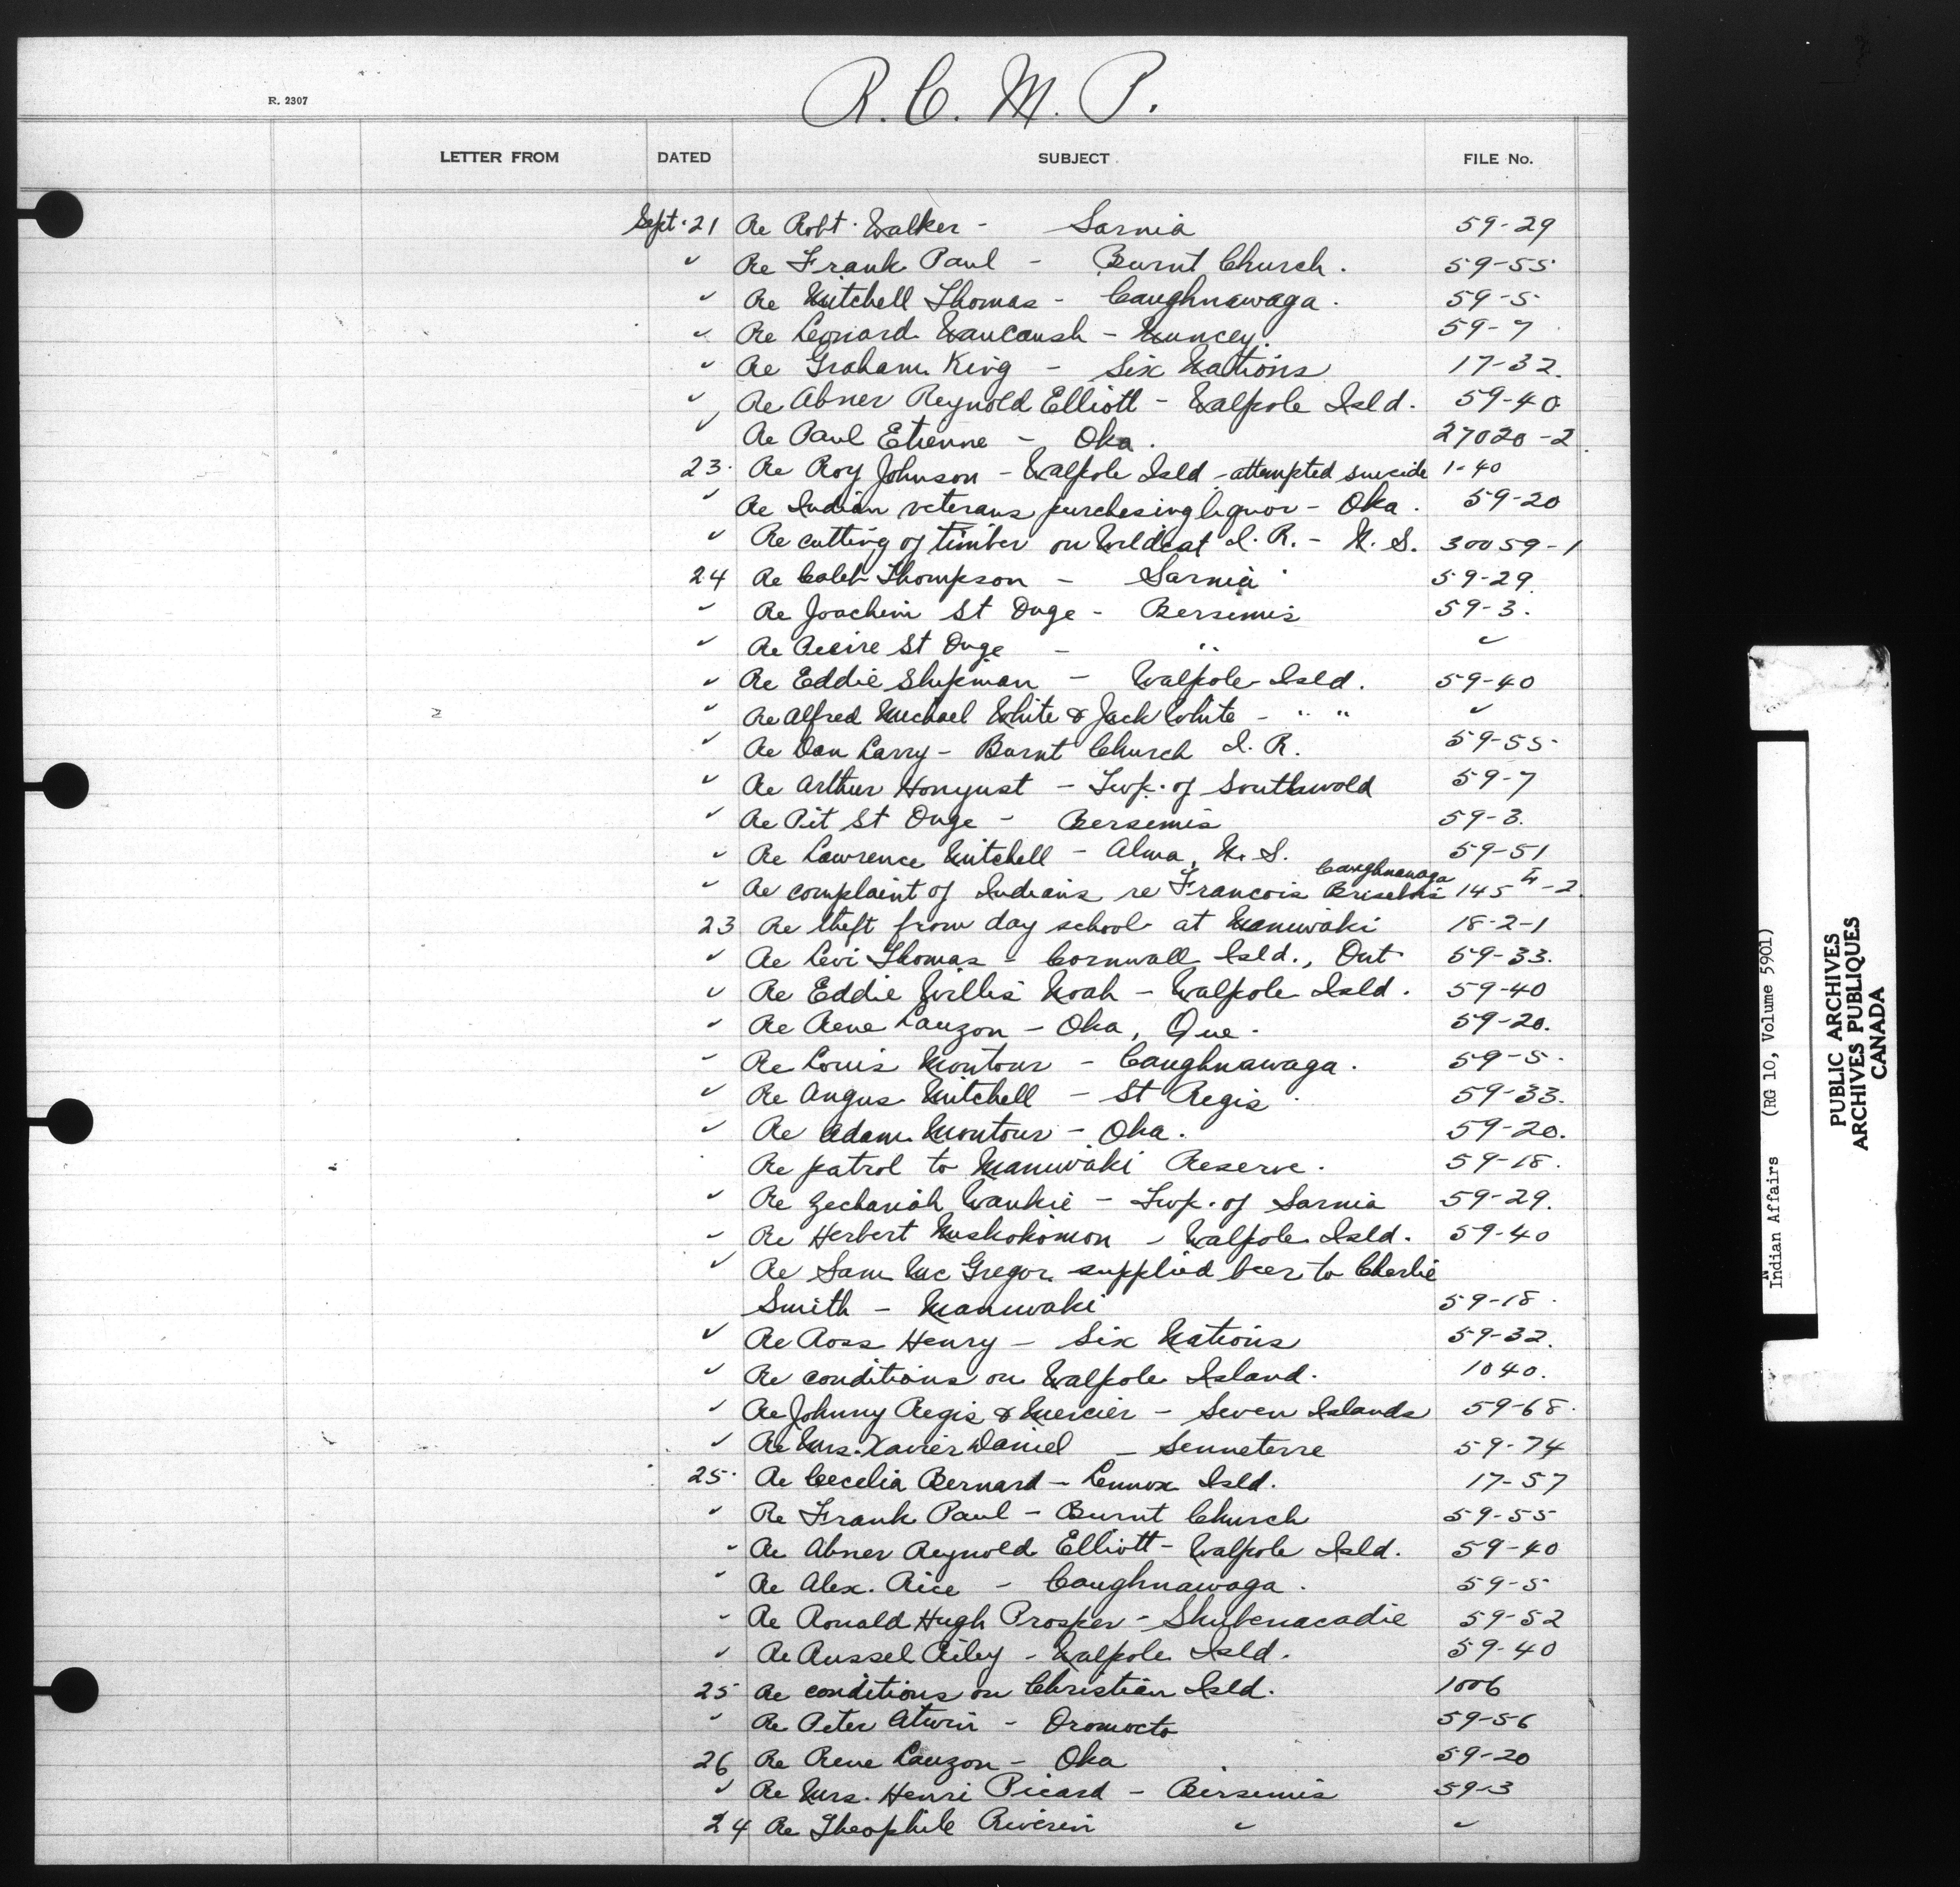 R. C. M. P.
R. 2307
LETTER FROM DATED SUBJECT FILE No.
Sept. 21 Re Robt. Walker - Sarnia 59-29
" Re Frank Paul - Burnt Church. 59-55
" Re Mitchell Thomas - Caughnawaga. 59-5
" Re Leonard Waucaush - Muncey. 59-7
" Re Graham King - Six Nations 17-32.
" Re Abner Reynold Elliott - Walpole Isld. 59-40
" Re Paul Etienne - Oka. 27020-2
23. Re Roy Johnson - Walpole Isld - attempted suicide 1-40
" Re Indian veterans purchasing liquor - Oka. 59-20
" Re cutting of timber on Wildcat I. R. - N. S. 30059-1
24 Re Caleb Thompson - Sarnia 59-29.
" Re Joachim St Onge - Bersemis 59-3.
" Re St Onge - " "
" Re Eddie Shipman - Walpole Isld. 59-40
" Re Alfred Michael White & Jack White - " " "
" Re Dan Larry - Burnt Church I. R. 59-55
" Re Arthur Honyust - Twp. of Southwold 59-7
" Re Pit St Onge - Bersemis 59-3.
" Re Lawrence Mitchell - Alma, N. S. 59-51
Caughnawaga
" Re complaint of Indians re Francois Brisebois 145-2
23 Re theft from day school at Maniwaki 18-2-1
" Re Levi Thomas - Cornwall Isld., Ont 59-33.
" Re Eddie Willis Noah - Walpole Isld. 59-40
" Re Rene Lauzon - Oka, Que. 59-20.
" Re Louis Montour - Caughnawaga. 59-5.
" Re Angus Mitchell - St Regis. 59-33.
" Re Adam Montour - Oka. 59-20.
Re patrol to Maniwaki Reserve. 59-18.
" Re Zechariah Wankie - Twp. of Sarnia 59-29.
" Re Herbert Muskokomon - Walpole Isld. 59-40
" Re Sam Mc Gregor supplied beer to Charlie
Smith - Maniwaki 59-18.
" Re Ross Henry - Six Nations 59-32.
" Re conditions on Walpole Island. 1040.
" Re Johnny Regis & Mercier - Seven Islands 59-68.
" Re Mrs. Xavier Daniel - Senneterre 59-74
25. Re Cecelia Bernard - Lennox Isld. 17-57
" Re Frank Paul - Burnt Church 59-55
" Re Abner Reynold Elliott - Walpole Isld. 59-40
" Re Alex. Rice - Caughnawaga. 59-5
" Re Ronald Hugh Prosper - Shubenacadie 59-52
" Re Russel Riley - Walpole Isld. 59-40
25 Re conditions on Christian Isld. 1006
" Re Peter Atwin - Oromocto 59-56
26 Re Rene Lauzon - Oka 59-20
" Re Mrs. Henri Picard - Bersemis 59-3
24 Re Theophile Riverin " "
Indian Affairs (RG 10, Volume 5901)
PUBLIC ARCHIVES
ARCHIVES PUBLIQUES
CANADA